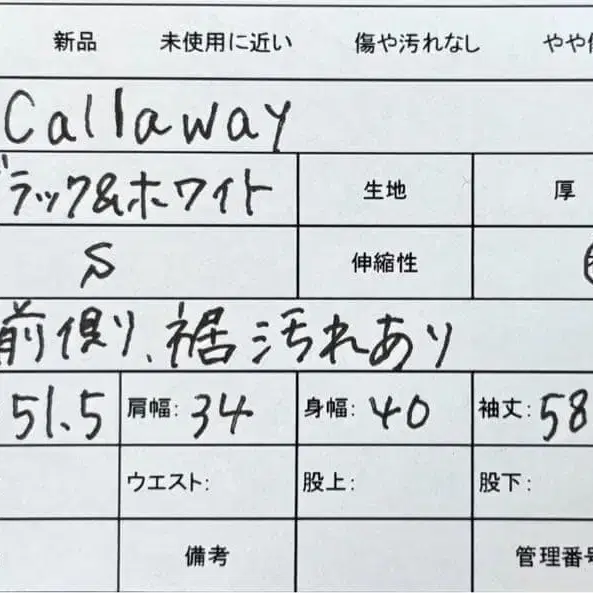 新品 未使用に近い 傷や汚れなし やや
Callaway
ブラック&ホワイト 生地 厚
S 伸縮性
前側、裾汚れあり
51.5 肩幅: 34 身幅: 40 袖丈: 58
ウエスト: 股上: 股下:
備考 管理番号